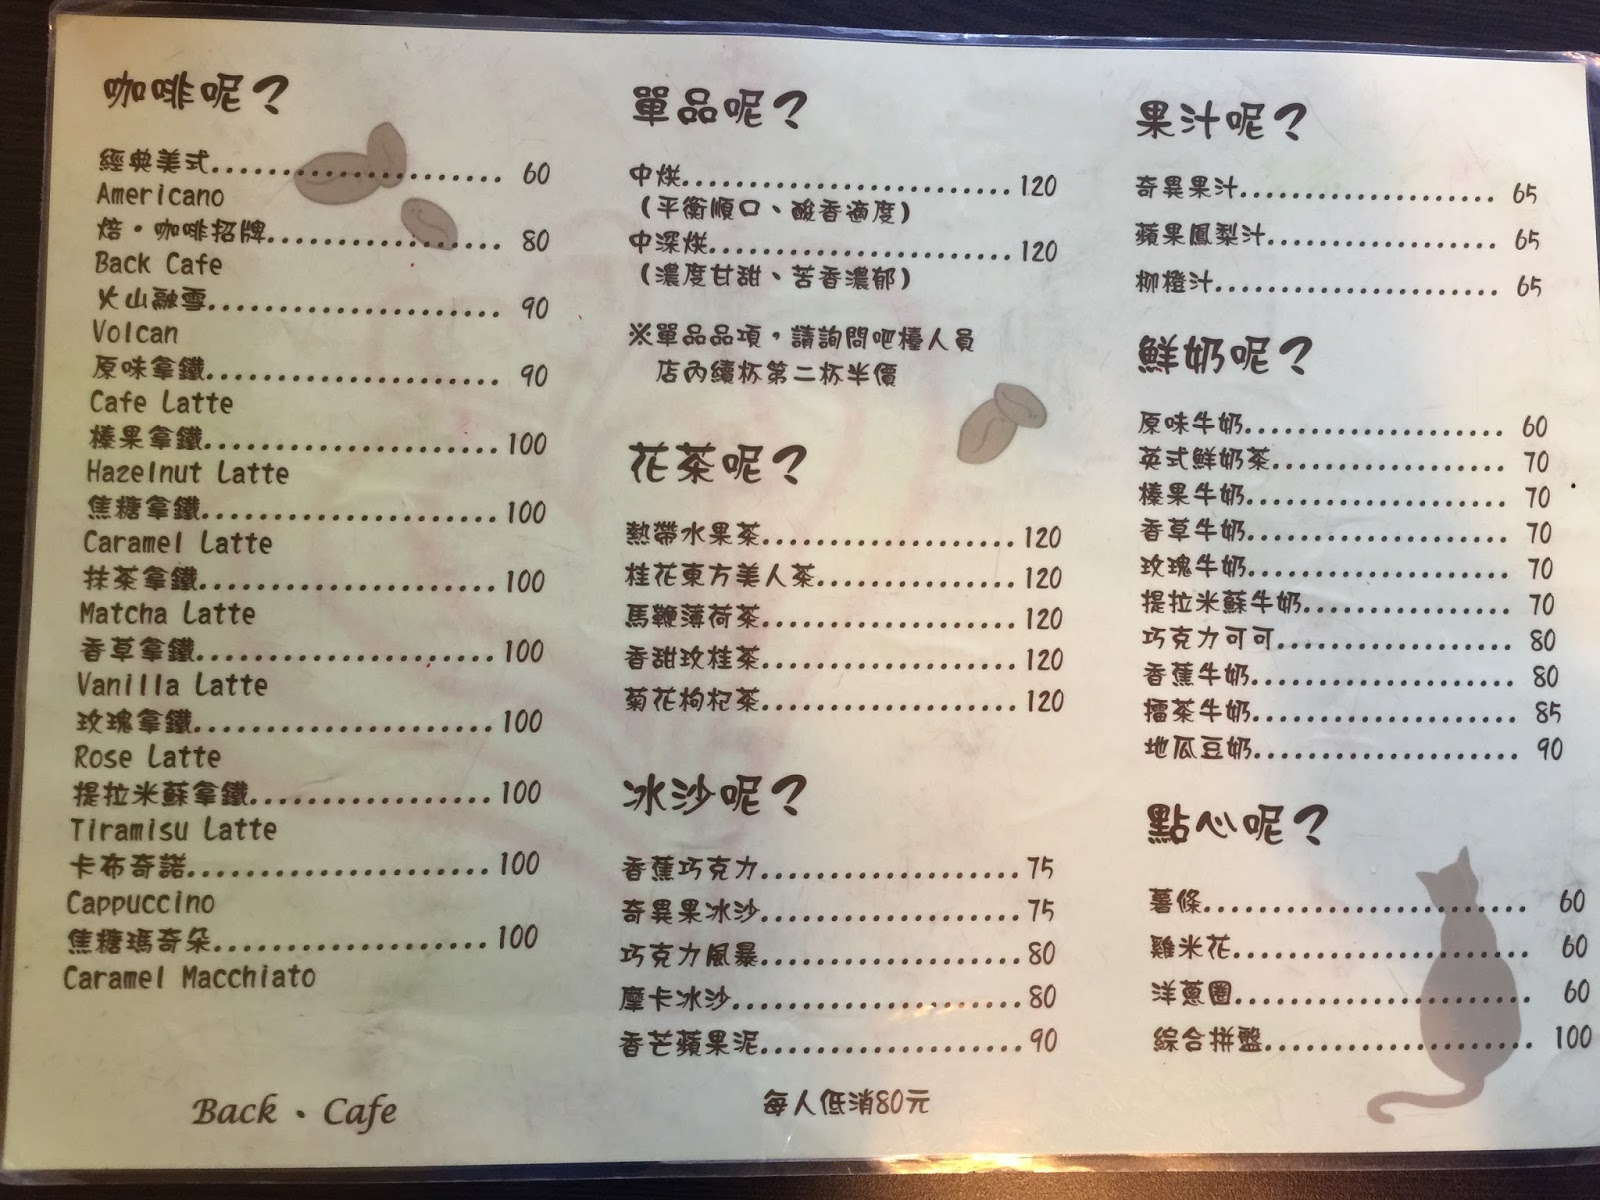 咖啡呢？
經典美式........................ 60
Americano
焙·咖啡招牌.................... 80
Back Cafe
火山融雪........................ 90
Volcan
原味拿鐵........................ 90
Cafe Latte
榛果拿鐵........................100
Hazelnut Latte
焦糖拿鐵........................100
Caramel Latte
抹茶拿鐵........................100
Matcha Latte
香草拿鐵........................100
Vanilla Latte
玫瑰拿鐵........................100
Rose Latte
提拉米蘇拿鐵...................100
Tiramisu Latte
卡布奇諾........................100
Cappuccino
焦糖瑪奇朵.....................100
Caramel Macchiato
Back、Cafe
單品呢？
中烘...........................120
（平衡順口、酸香適度）
中深烘.........................120
（濃度甘甜、苦香濃郁）
※單品品項，請詢問吧檯人員
店內續杯第二杯半價
花茶呢？
熱帶水果茶.....................120
桂花東方美人茶.................120
馬鞭薄荷茶.....................120
香甜玫桂茶.....................120
菊花枸杞茶.....................120
冰沙呢？
香蕉巧克力.....................75
奇異果冰沙.....................75
巧克力風暴.....................80
摩卡冰沙.......................80
香芒蘋果泥.....................90
每人低消80元
果汁呢？
奇異果汁..................... 65
蘋果鳳梨汁................... 65
柳橙汁....................... 65
鮮奶呢？
原味牛奶..................... 60
英式鮮奶茶................... 70
榛果牛奶..................... 70
香草牛奶..................... 70
玫瑰牛奶..................... 70
提拉米蘇牛奶................. 70
巧克力可可................... 80
香蕉牛奶..................... 80
擂茶牛奶..................... 85
地瓜豆奶..................... 90
點心呢？
薯條......................... 60
雞米花....................... 60
洋蔥圈....................... 60
綜合拼盤..................... 100